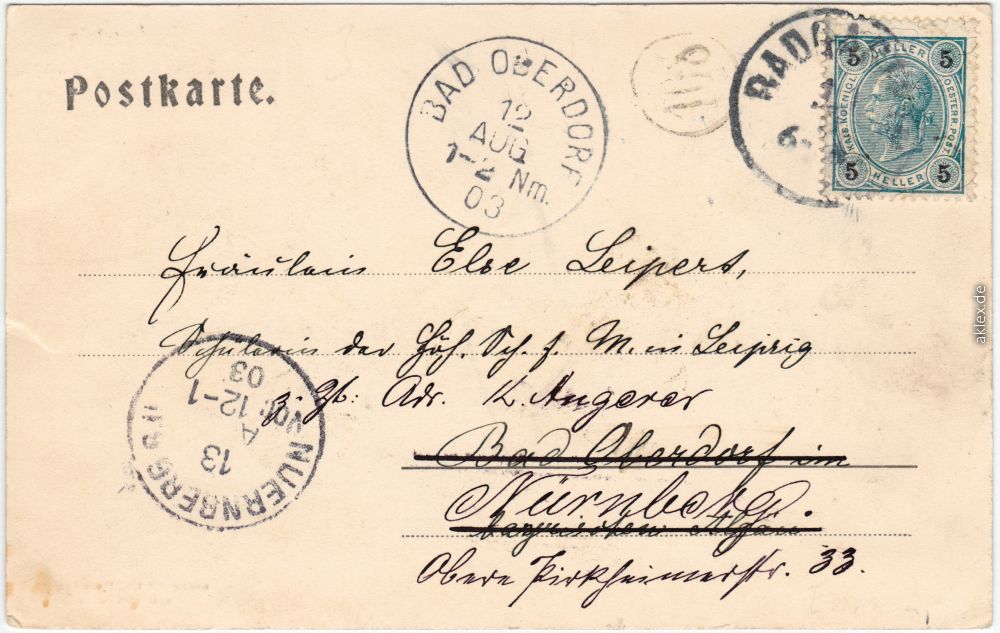 Postkarte.
BAD OBERDORF
12
AUG
1-2 Nm.
03
5 HELLER 5
KAIS. KOENIGL. OESTERR. POST
5 HELLER 5
Fräulein Else Leipert,
Schülerin der Höh. Sch. f. M. in Leipzig
z. Zt: Adr. K. Angerer
Bad Oberdorf im
Nürnberg.
bayrischen Algäu
Obere Pirkheimerstr. 33.
NUERNBERG
13
A
VOR 12-1
03
aklex.de